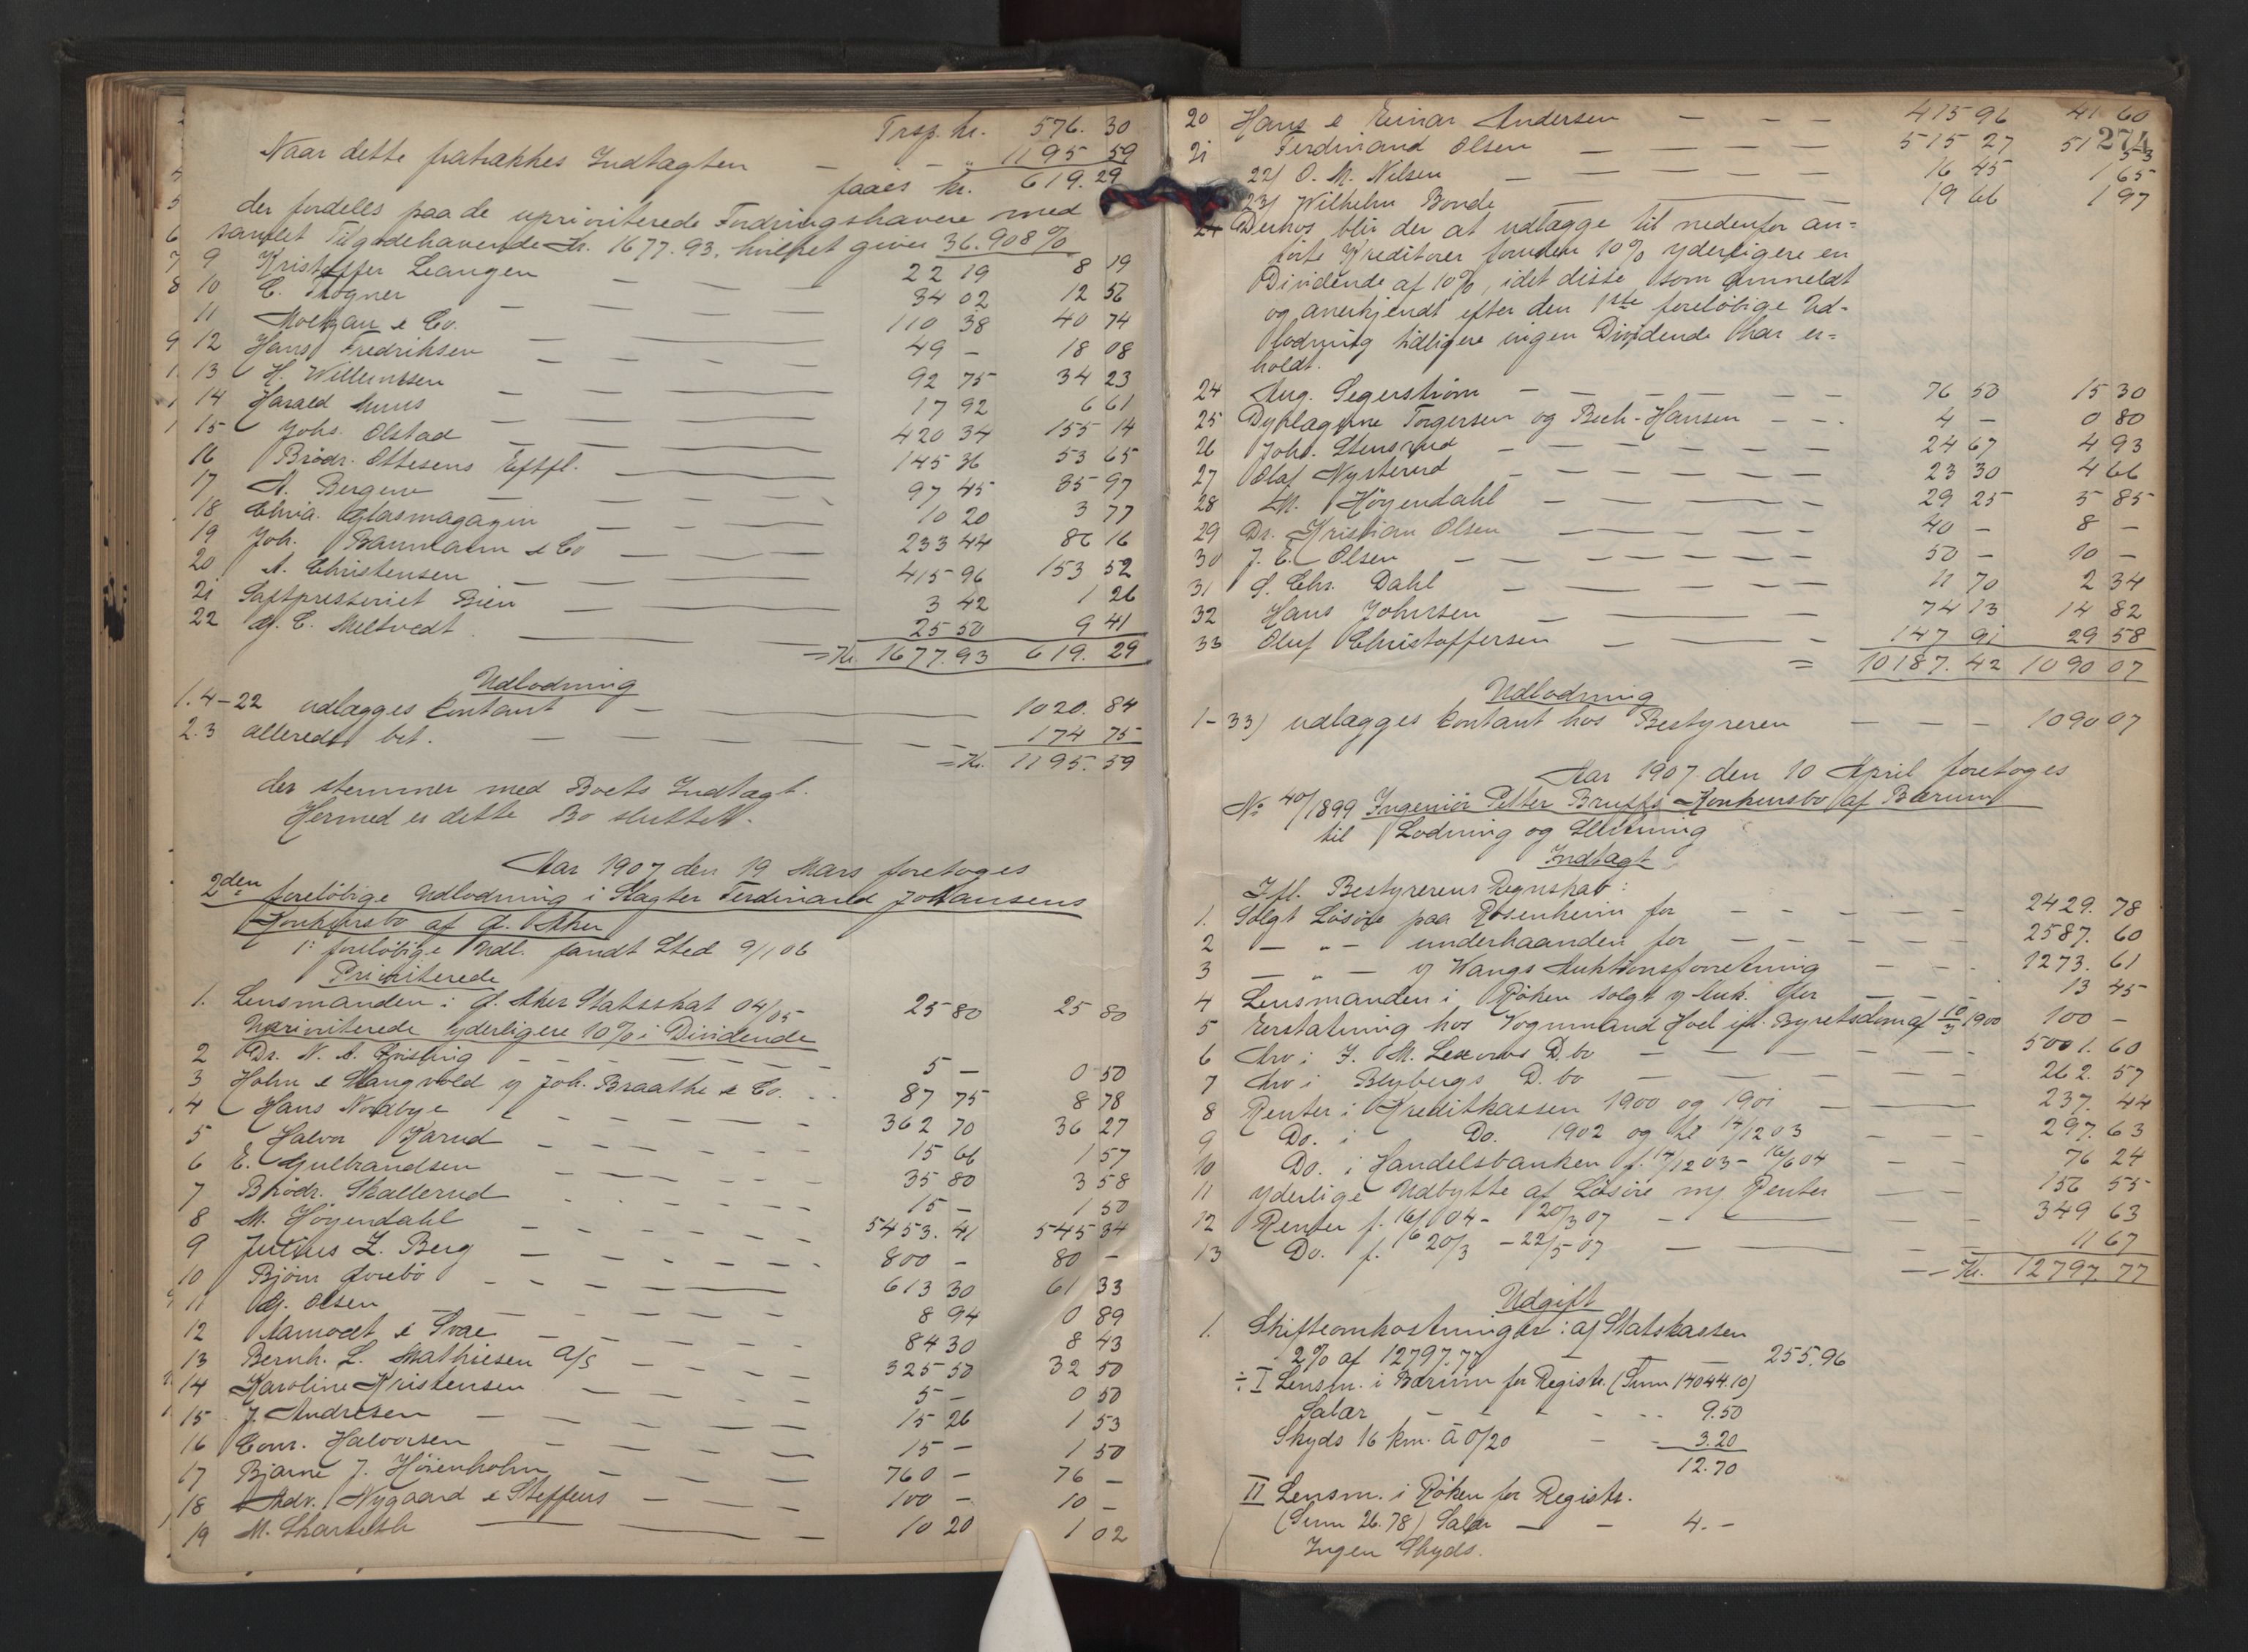 Trsp. Kr. 576. 30
Naar dette fratrækkes Indtægten — — „ 1195 59
faaes Kr. 619. 29
der fordeles paa de uprioriterede Fordringshavere med
samlet Tilgodehavende Kr. 1677.93, hvilket giver 36.908 %
9 Kristoffer Leangen — — — 22 19 8 19
10 C. Trogner — — — 34 02 12 56
11 & Co. — — — 110 38 40 74
12 Hans Fredriksen — — — 49 — 18 08
13 H. Willumsen — — — 92 75 34 23
14 Harald Muus — — — 17 92 6 61
15 Johs. Olstad — — — 420 34 155 14
16 Brødr. Ottesens Eftfl. — — 145 36 53 65
17 A. Bergene — — — 97 45 35 97
18 Chria. Glasmagazin — — — 10 20 3 77
19 Joh. Baumann & Co — — — 233 44 86 16
20 A. Christensen — — — 415 96 153 52
21 Saftpresseriet Bien — — 3 42 1 26
22 G. C. Meltvedt — — 25 50 9 41
= Kr. 1677.93 619. 29
Udlodning
1. 4-22 udlægges kontant — — 1020. 84
2.3 allerede bet. — — — 174 75
= Kr. 1195. 59
der stemmer med Boets Indtægt.
Hermed er dette Bo sluttet.
Aar 1907 den 19 Mars foretoges
2den foreløbige Udlodning i Slagter Ferdinand Johansens
Konkursbo af Ø. Aker
1: foreløbige Udl. fandt Sted 9/1 06
Prioriterede
1. Lensmanden i Ø. Aker Statsskat 04/05 25 80 25 80
Uprioriterede yderligere 10% i Dividende
2 Dr. N. A. Quisling — — — 5 — 0 50
3 Holm & Stangvold v/ Joh. Braathe & Co. 87 75 8 78
4 Hans Nordbye — — — 362 70 36 27
5 Halvor Karud — — — 15 66 1 57
6 E. Gulbrandsen — — — 35 80 3 58
7 Brødr. Skallerud — — — 15 — 1 50
8 M. Høyendahl — — — 5453. 41 545 34
9 Julius L. Berg — — — 800 — 80 —
10 Bjørn Qvebø — — — 613 30 61 33
11 G. Olsen — — — 8 94 0 89
12 Aamodt & Svae — — — 84 30 8 43
13 Bernh. L. Mathiesen A/S — — 325 50 32 50
14 Karoline Kristensen — — 5 — 0 50
15 J. Andresen — — — 15 26 1 53
16 Conr. Halvorsen — — — 15 — 1 50
17 Bjarne J. Høienholm — — — 760 — 76 —
18 Adv. Nygaard & Steffens — — 100 — 10 —
19 M. — — — 10 20 1 02
274
20 Hans & Einar Andersen — — — 415 96 41 60
21 Ferdinand Olsen — — — 515 27 51 53
22) O. M. Nilsen — — — 16 45 1 65
23) Wilhelm Bonde — — — 19 66 1 97
24 Derhos blir der at udlægge til nedenfor an=
førte Kreditorer foruden 10% yderligere en
Dividende af 10%, idet disse som anmeldt
og anerkjendt efter den 1ste foreløbige Ud-
lodning tidligere ingen Dividende har er=
holdt.
24 Aug. Segerstrøm — — — 76 50 15 30
25 Dyrlægerne Torgersen og Bech-Hansen — — 4 — 0 80
26 Joh. Stensrud — — — 24 67 4 93
27 Olaf Nysterud — — — 23 30 4 66
28 M. Høyendahl — — — 29 25 5 85
29 Dr. Kristian Olsen — — — 40 — 8 —
30 J. E. Olsen — — — 50 — 10 —
31 S. Chr. Dahl — — — 11 70 2 34
32 Hans Johnsen — — — 74 13 14 82
33 Oluf Christoffersen — — — 147 91 29 58
= 10187. 42 1090 07
Udlodning
1-33) udlægges kontant hos Bestyreren — — — 1090 07
Aar 1907 den 10 April foretoges
No 40/1899 Ingeniør Petter Bruffs Konkursbo af Bærum
til Lodning og Slutning
Indtægt
Ifl. Bestyrerens Regnskab:
1. Solgt Løsøre paa Rosenheim for — — — 2429. 78
2 — „ — underhaanden for — — — 2587. 60
3 — „ — v/ Wangs Auktionsforretning — — 1273. 61
4 Lensmanden i Røken solgt v/ Auk. for — — 13 45
5 Erstatning hos Vognmand Hoel ifl. Byretsdom af 10/3 1900 100 —
6 Arv i J. M. Lexows D. bo — — — 5001. 60
7 Arv i Blybergs D. bo — — — 262. 57
8 Renter i Kreditkassen 1900 og 1901 — — 237. 44
9 Do. i Do. 1902 og til 17/12 03 — — 297. 63
10 Do. i Handelsbanken f. 17/12 03 - 16/6 04 — — 76 24
11 Yderlige Udbytte af Løsøre m/ Renter — — 156 55
12 Renter f. 16/6 04 - 20/3 07 — — 349 63
13 Do. f. 20/3 - 22/5 07 — — 11 67
— Kr. 12797. 77
Udgift
1. Skifteomkostninger: af Statskassen
2% af 12797.77 — — 255.96
÷ I Lensm. i Bærum for Registr. (Sum 14044.10)
Salær — — — 9.50
Skyds 16 km. à 0/20 — 3.20
12.70
II Lensm. i Røken for Registr.
(Sum 26.78) Salær — — 4. —
Ingen Skyds.